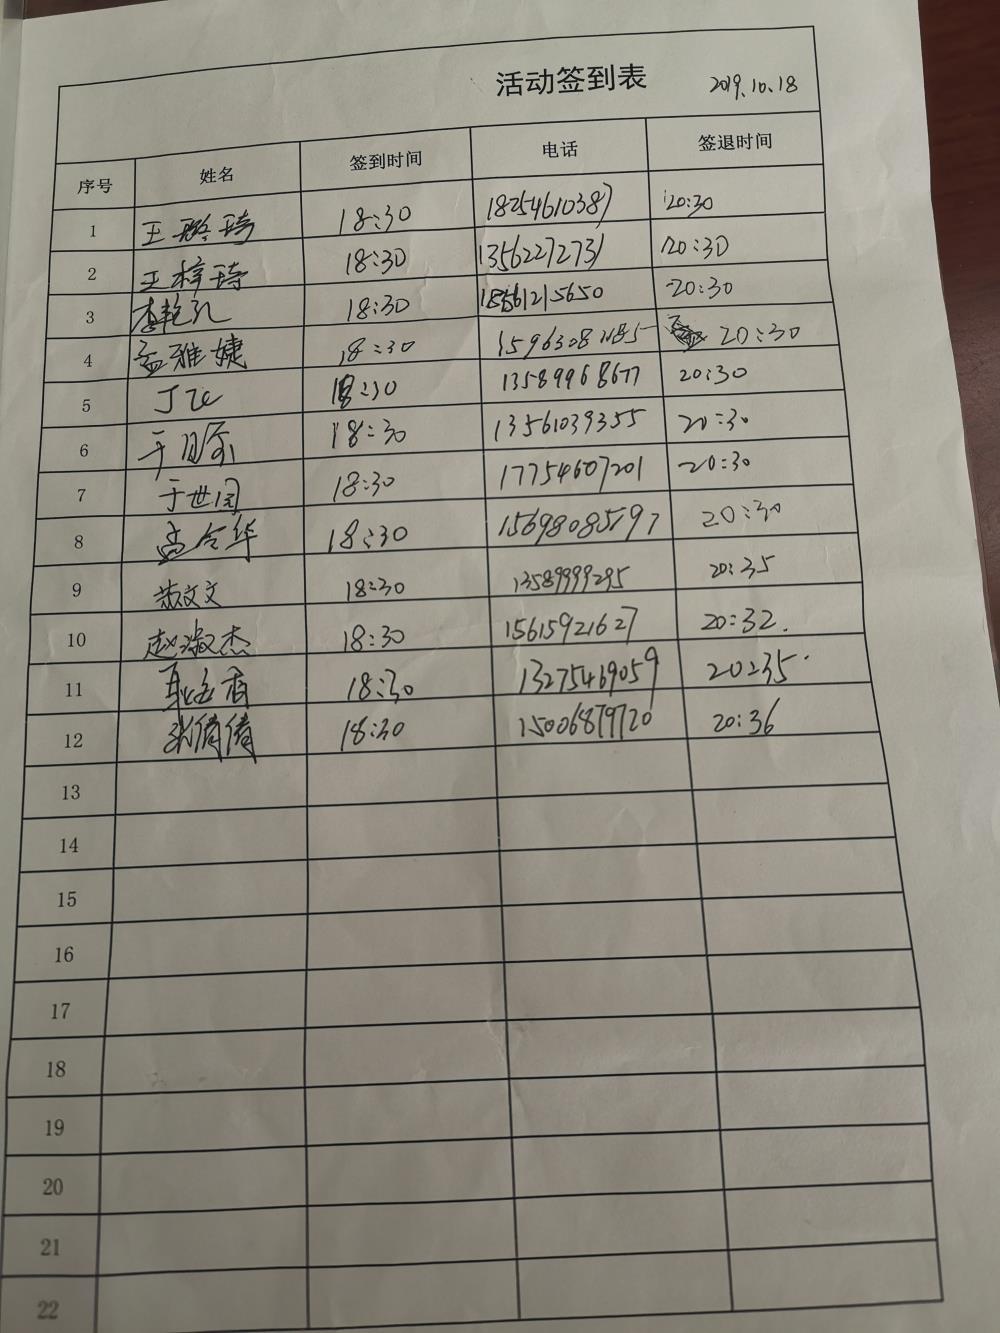 活动签到表 2019.10.18
序号 姓名 签到时间 电话 签退时间
1 王 琦 18:30 18254610387 20:30
2 王梓琦 18:30 13562272731 20:30
3 李艳 18:30 18561215650 20:30
4 孟雅婕 18:30 20:30
5 丁 18:30 13589968677 20:30
6 于 18:30 13561039355 20:30
7 于世园 18:30 17754607201 20:30
8 孟令华 18:30 15698085797 20:30
9 文文 18:30 13589999295 20:35
10 赵淑杰 18:30 15615921627 20:32.
11 耿 香 18:30 13275469059 20:35
12 张倩倩 18:30 15006879720 20:36
13
14
15
16
17
18
19
20
21
22